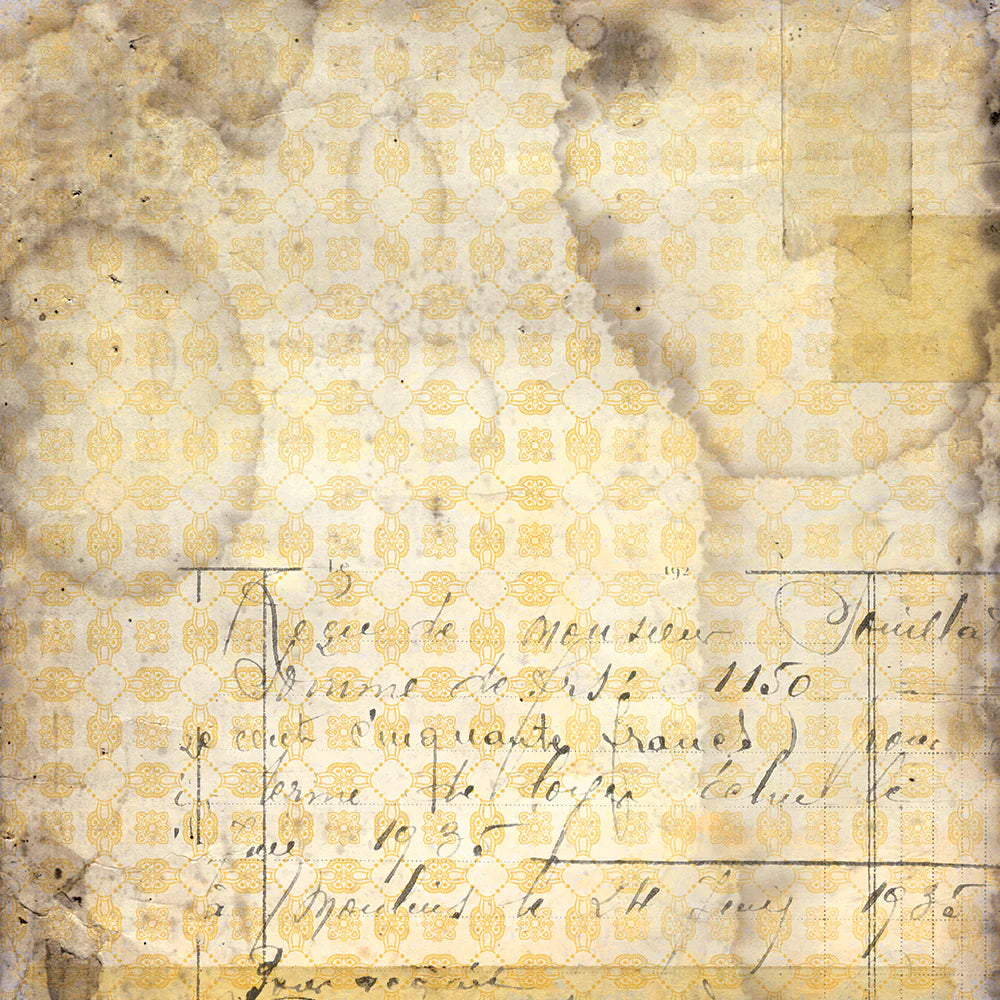 19 192
Reçu de monsieur Pouilla
Somme de frs: 1150
cent cinquante francs) pour
terme de loyer échu le
1935
à Moulins le 24 1935
Pour acquit